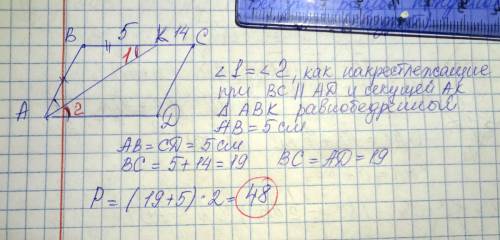 B 5 K 14 C
1
A 2 D
∠1=∠2, как накрестлежащие
при BC ∥ AD и секущей AK
Δ ABK равнобедренный
AB=5см
AB=CD=5см
BC=5+14=19 BC=AD=19
P=(19+5)·2=48